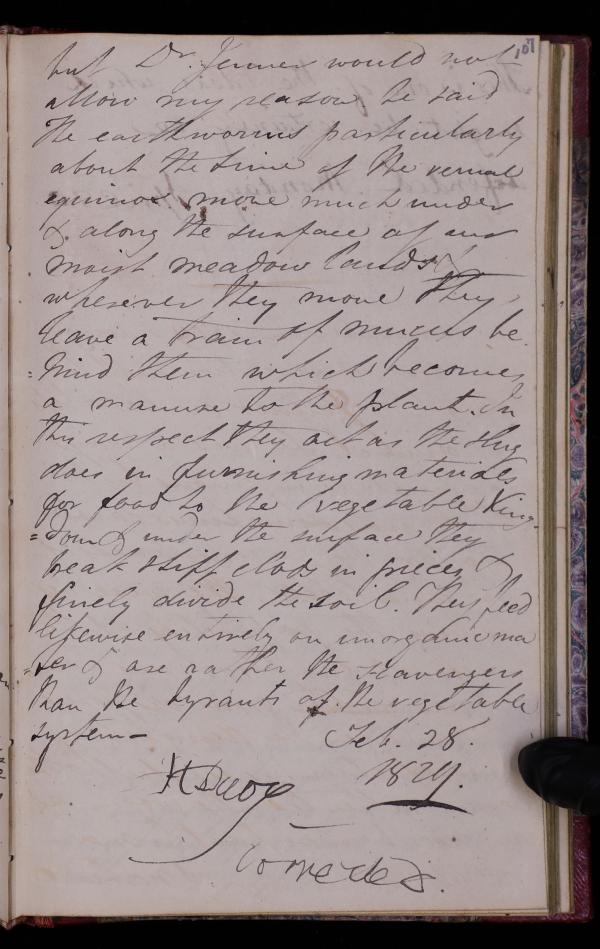 107
but Dr. Jenner would not
allow my reason, he said
the earthworms particularly
about the time of the vernal
equinox move much under
& along the surface of our
moist meadow lands; &
wherever they move they
leave a train of mucus be
=hind them which becomes
a manure to the plant. In
this respect they act as the slug
does in furnishing materials
for food to the vegetable King-
=dom & under the surface they
break stiff clods in pieces &
finely divide the soil. They feed
likewise entirely on inorganic ma
=ter & are rather the scavengers
than the tyrants of the vegetable
system–
Feb. 28.
1829.
H Davy
corrected.